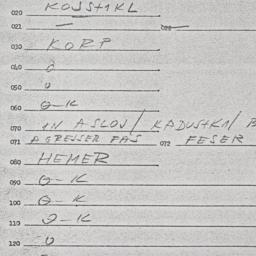 020 KOJSTIKL
021 — 022 —
030 KORP
040 O
050 O
060 O-K
070 IN ASLOV/ KADUSTKI/
071 AGRESSER FAS 072 FESER
080 HEMER
090 O-K
100 O-K
110 O-K
120 O